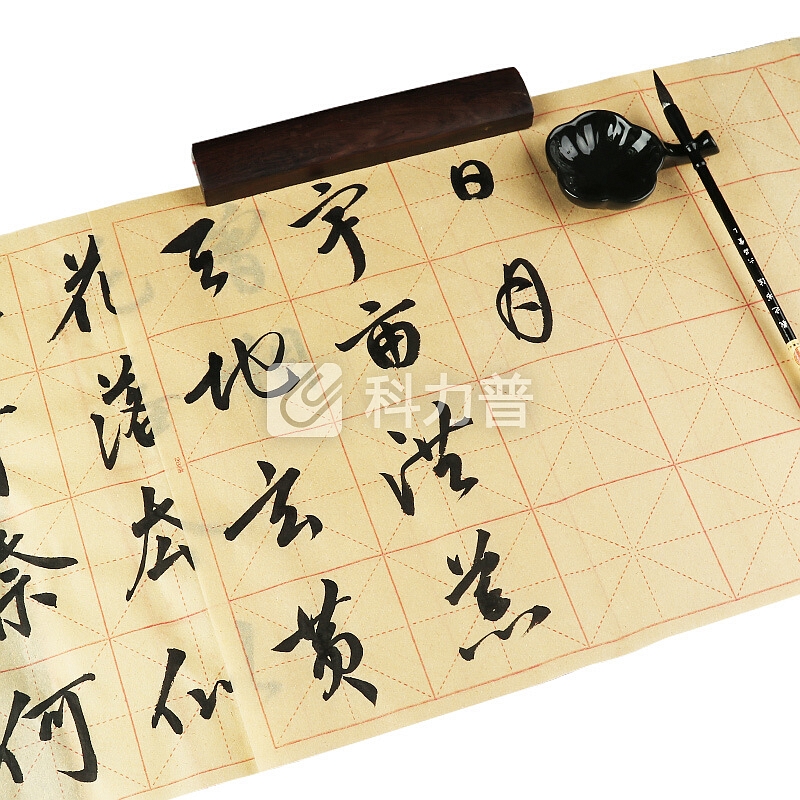 奈何
花落去似
天地玄黄
宇宙洪荒
日月
科力普